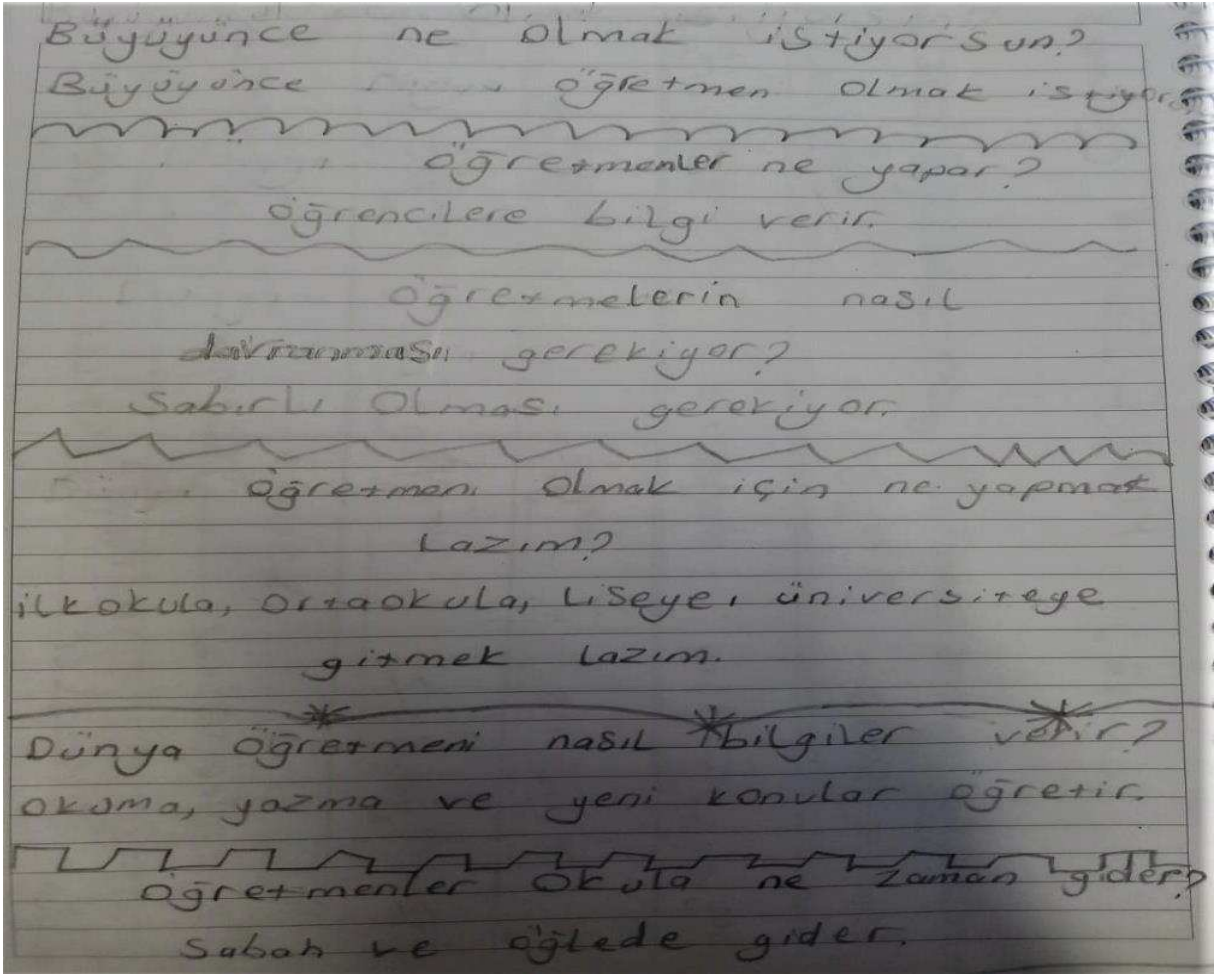 Büyüyünce ne olmak istiyorsun?
Büyüyünce öğretmen olmak istiyor
Öğretmenler ne yapar?
öğrencilere bilgi verir.
öğretmelerin nasıl
davranması gerekiyor?
Sabırlı olması gerekiyor.
öğretmeni olmak için ne yapmak
Lazım?
ilkokula, ortaokula, Liseye, üniversiteye
gitmek lazım.
Dünya öğretmeni nasıl bilgiler verir?
okuma, yazma ve yeni konular öğretir.
öğretmenler okula ne zaman gider?
Sabah ve öğlede gider.